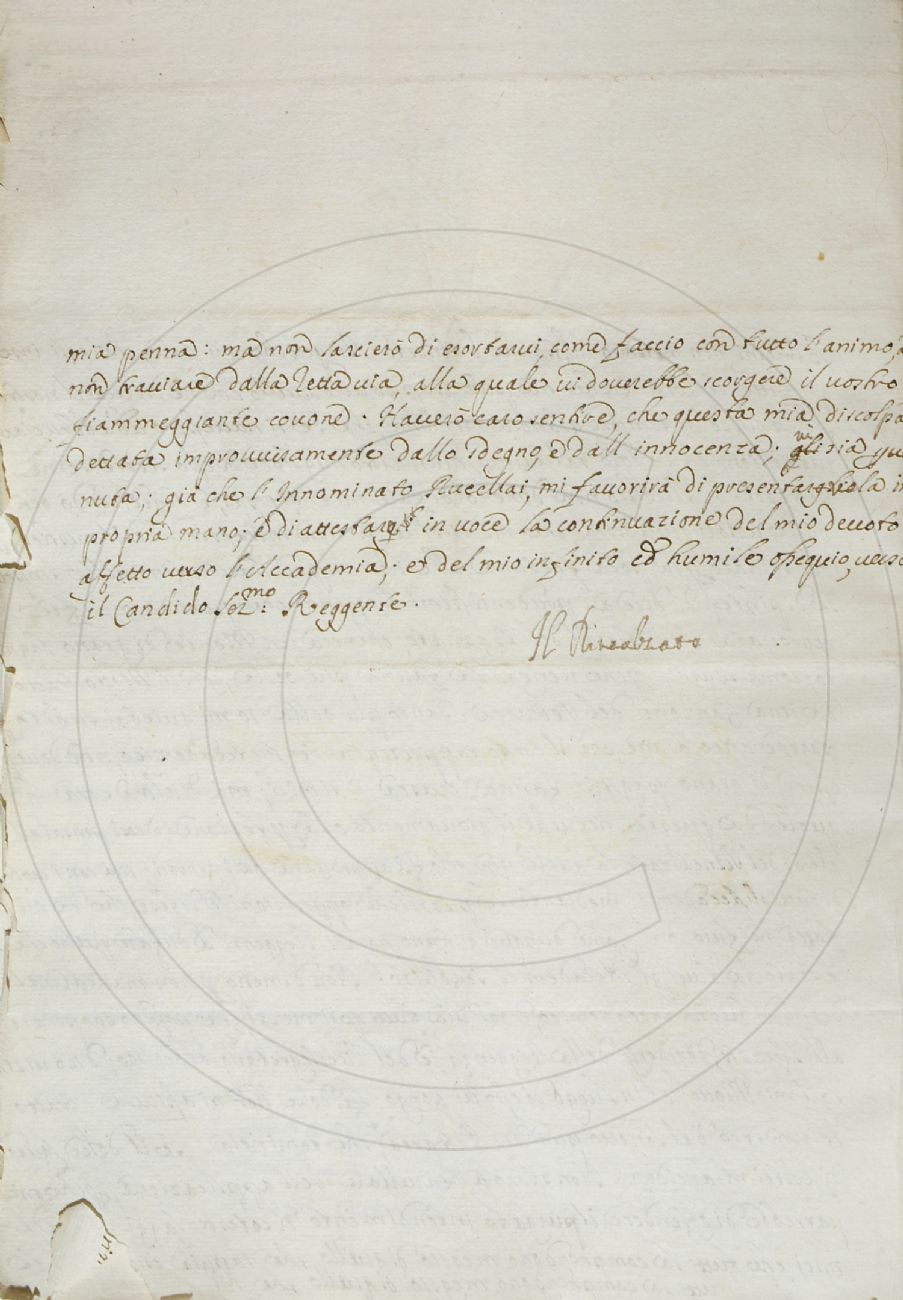 mia penna: ma non lascierò di esortarui, come faccio con tutto l'animo, à
non trauiare dalla retta uia, alla quale ui douerebbe scorgere il uostro
fiammeggiante couone. Hauerò caro sentire, che questa mia discolpa
dettata improvvisamente dallo sdegno, e dall'innocenza; ui sia
nuta; già che l'Innominato Rucellai, mi fauorirà di presentaruela in
propria mano; e di attestarui in uoce la continuazione del mio deuoto
affetto uerso l'Accademia; et del mio infinito ed humile ossequio, uerso
il Candido Ser.mo Reggente.
Il Rincalzato